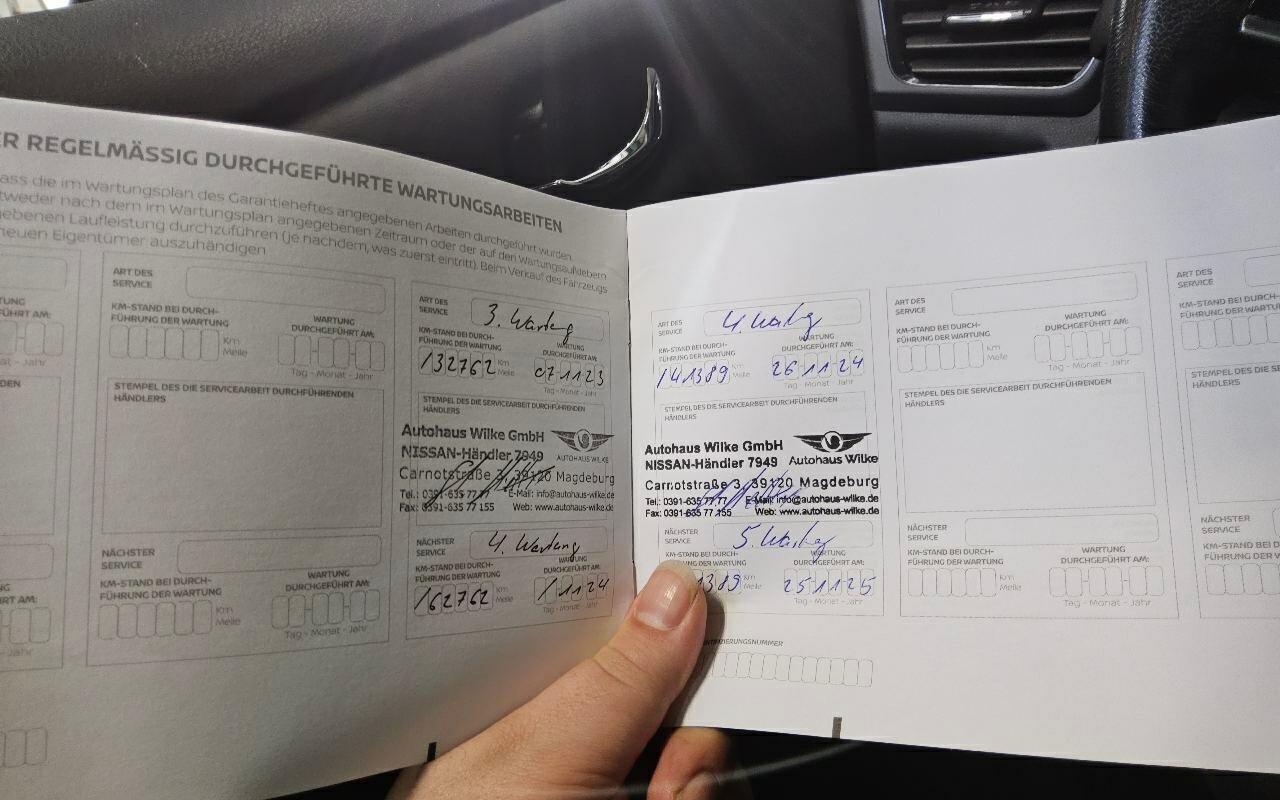 ER REGELMÄSSIG DURCHGEFÜHRTE WARTUNGSARBEITEN
ass die im Wartungsplan des Garantieheftes angegebenen Arbeiten durchgeführt wurden.
tweder nach dem im Wartungsplan angegebenen Zeitraum oder der auf den Wartungsaufklebern
gebenen Laufleistung durchzuführen (je nachdem, was zuerst eintritt). Beim Verkauf des Fahrzeugs
neuen Eigentümer auszuhändigen
TUNG
FÜHRT AM:
at - Jahr
DEN
FÜHRT AM:
at - Jahr
ART DES
SERVICE
KM-STAND BEI DURCH-
FÜHRUNG DER WARTUNG
Km
Meile
WARTUNG
DURCHGEFÜHRT AM:
Tag - Monat - Jahr
STEMPEL DES DIE SERVICEARBEIT DURCHFÜHRENDEN
HÄNDLERS
NÄCHSTER
SERVICE
KM-STAND BEI DURCH-
FÜHRUNG DER WARTUNG
Km
Meile
WARTUNG
DURCHGEFÜHRT AM:
Tag - Monat - Jahr
ART DES
SERVICE
3. Wartung
KM-STAND BEI DURCH-
FÜHRUNG DER WARTUNG
132762 Km
Meile
WARTUNG
DURCHGEFÜHRT AM:
07 11 23
Tag - Monat - Jahr
STEMPEL DES DIE SERVICEARBEIT DURCHFÜHRENDEN
HÄNDLERS
Autohaus Wilke GmbH
NISSAN-Händler 7949
AUTOHAUS WILKE
Carnotstraße 3, 39120 Magdeburg
Tel.: 0391-635 77 77 E-Mail: info@autohaus-wilke.de
Fax: 0391-635 77 155 Web: www.autohaus-wilke.de
NÄCHSTER
SERVICE
4. Wartung
KM-STAND BEI DURCH-
FÜHRUNG DER WARTUNG
162762 Km
Meile
WARTUNG
DURCHGEFÜHRT AM:
/ 11 24
Tag - Monat - Jahr
ART DES
SERVICE
4. Wartung
KM-STAND BEI DURCH-
FÜHRUNG DER WARTUNG
141389 Km
Meile
WARTUNG
DURCHGEFÜHRT AM:
26 11 24
Tag - Monat - Jahr
STEMPEL DES DIE SERVICEARBEIT DURCHFÜHRENDEN
HÄNDLERS
Autohaus Wilke GmbH
NISSAN-Händler 7949
Autohaus Wilke
Carnotstraße 3, 39120 Magdeburg
Tel.: 0391-635 77 77 E-Mail: info@autohaus-wilke.de
Fax: 0391-635 77 155 Web: www.autohaus-wilke.de
NÄCHSTER
SERVICE
5. Wartung
KM-STAND BEI DURCH-
UNG DER WARTUNG
1389 Km
Meile
WARTUNG
DURCHGEFÜHRT AM:
25 11 25
Tag - Monat - Jahr
NTIFIZIERUNGSNUMMER
ART DES
SERVICE
KM-STAND BEI DURCH-
FÜHRUNG DER WARTUNG
Km
Meile
WARTUNG
DURCHGEFÜHRT AM:
Tag - Monat - Jahr
STEMPEL DES DIE SERVICEARBEIT DURCHFÜHRENDEN
HÄNDLERS
NÄCHSTER
SERVICE
KM-STAND BEI DURCH-
FÜHRUNG DER WARTUNG
Km
Meile
WARTUNG
DURCHGEFÜHRT AM:
Tag - Monat - Jahr
ART DES
SERVICE
KM-STAND BEI DURCH-
FÜHRUNG DER WARTUNG
STEMPEL DES DIE SERV
HÄNDLERS
NÄCHSTER
SERVICE
KM-STAND BEI DURCH-
FÜHRUNG DER WARTUNG